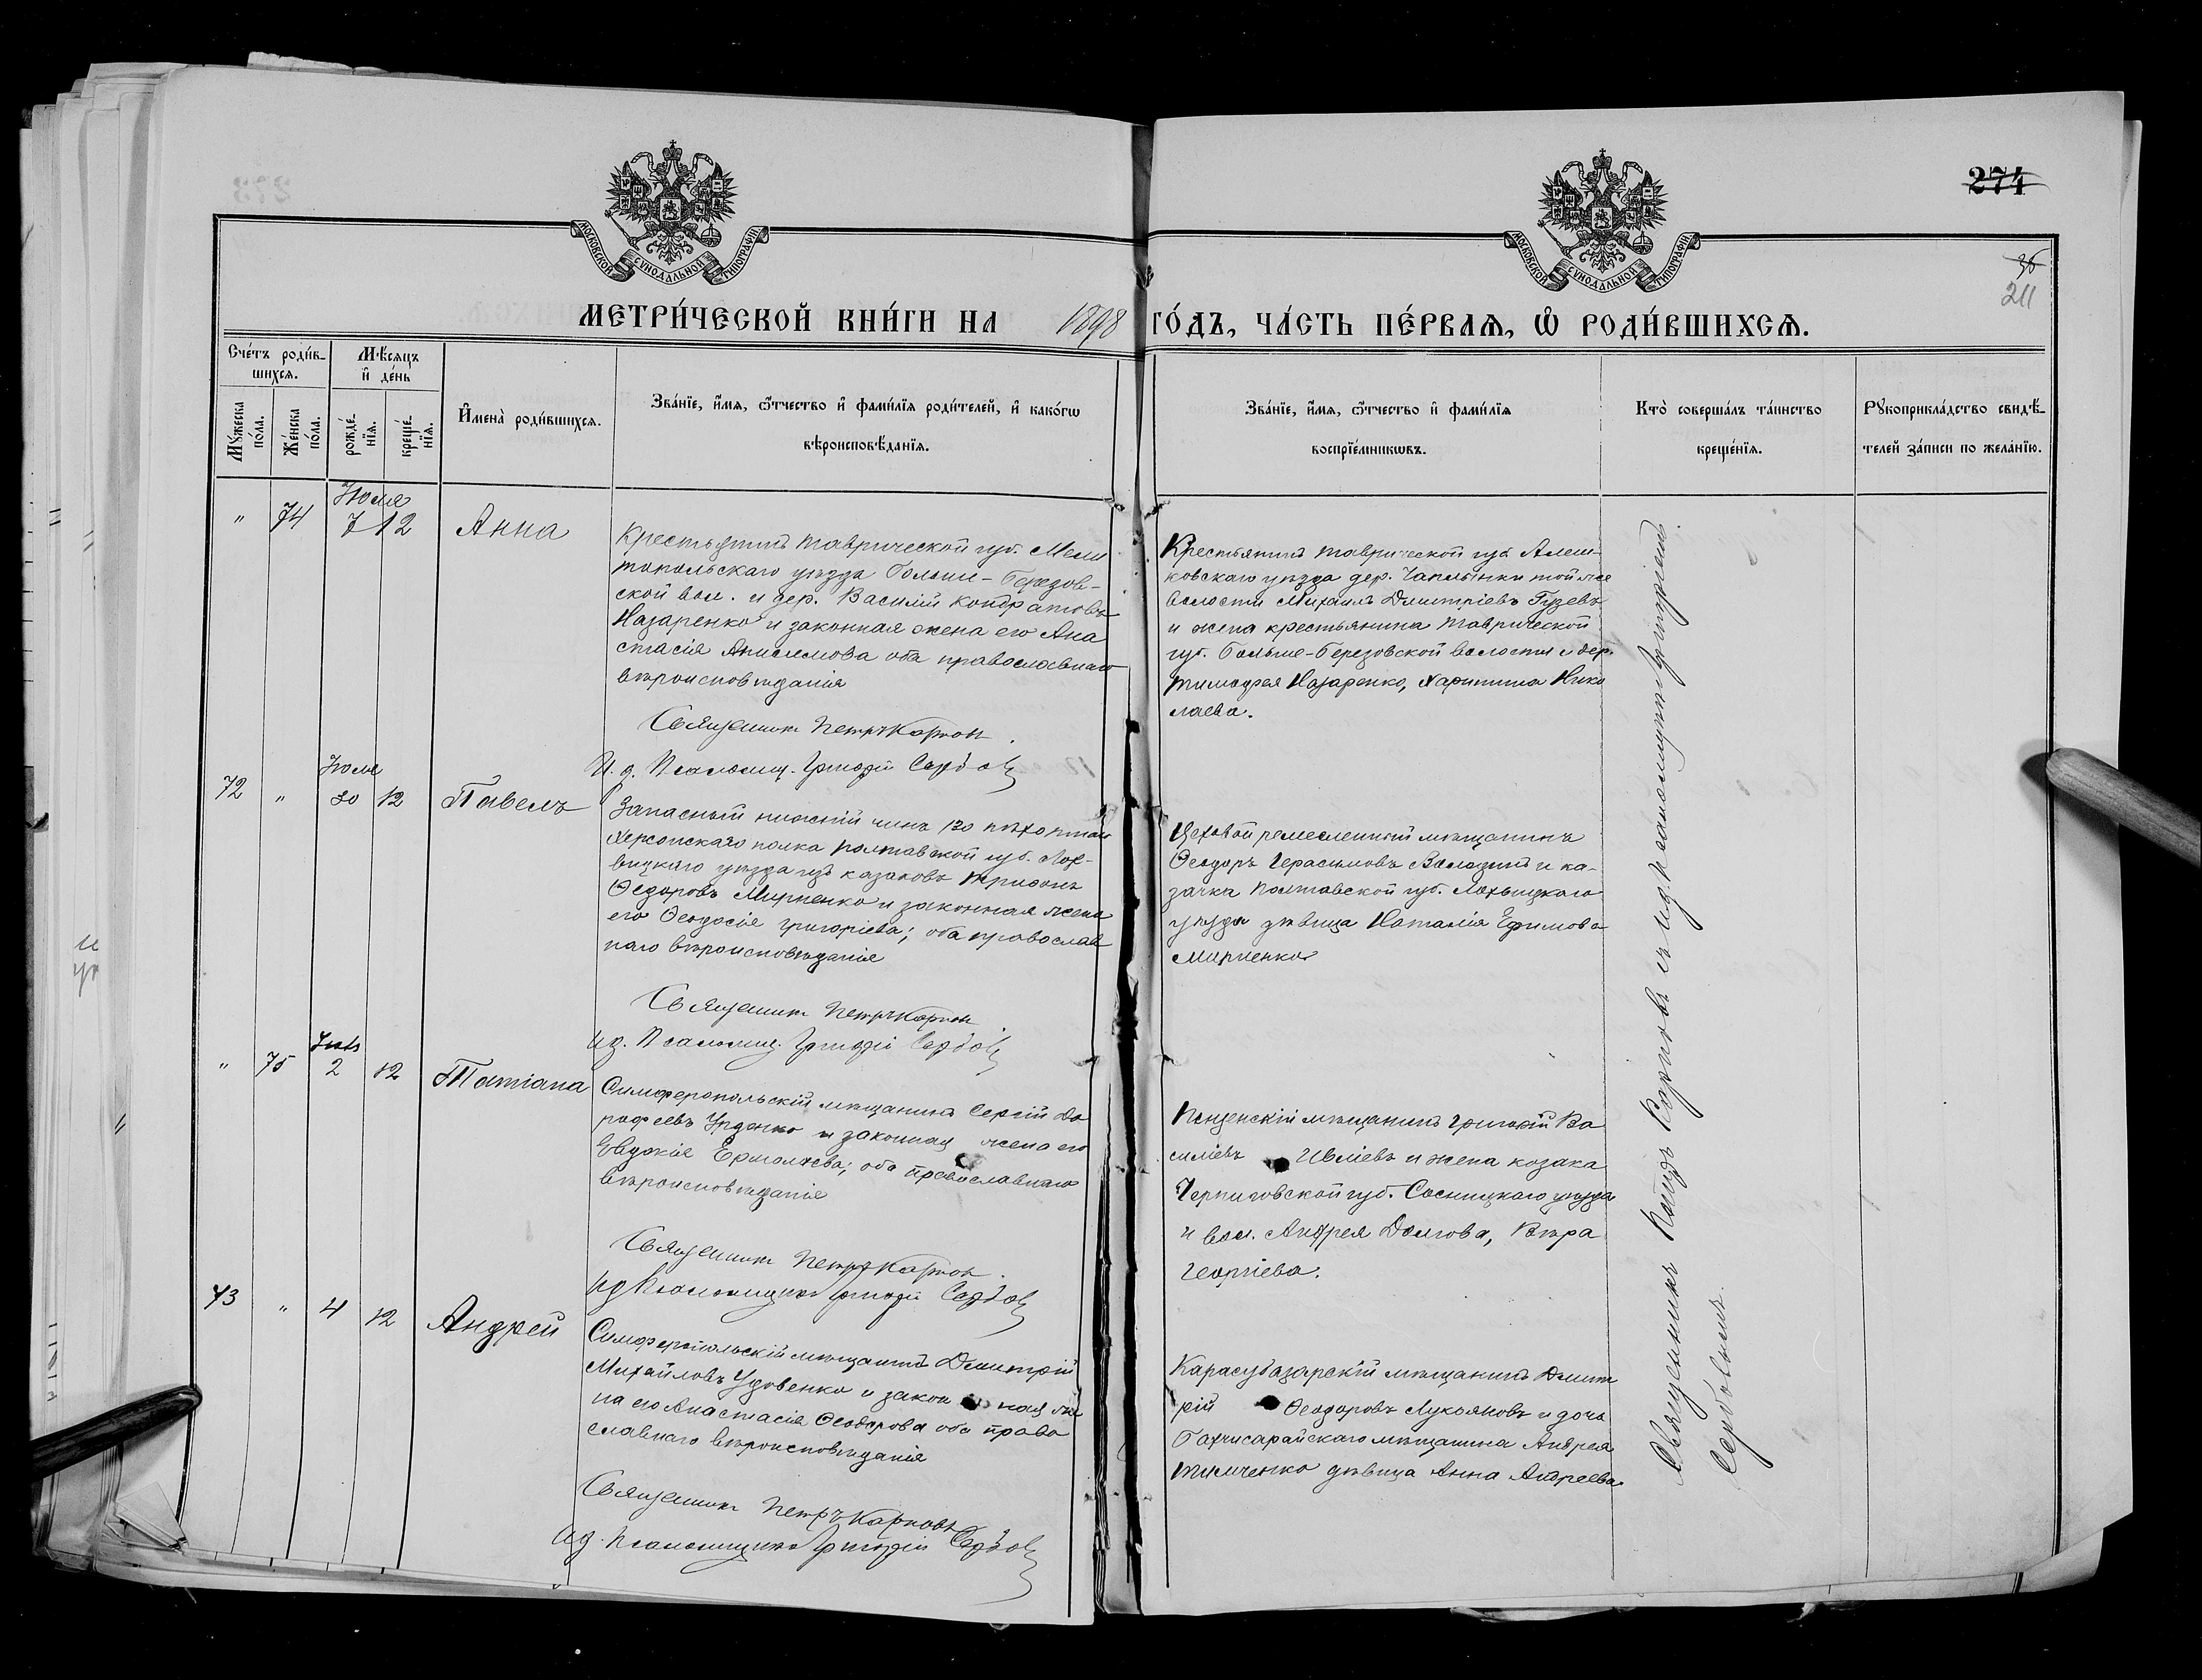 274
36
211
МОСКОВСКОЙ СѴНОДАЛЬНОЙ ТИПОГРАФІИ
МОСКОВСКОЙ СѴНОДАЛЬНОЙ ТИПОГРАФІИ
МЕТРИ́ЧЕСКОЙ КНИ́ГИ НА 1898 ГО́ДЪ, ЧА́СТЬ ПЕ́РВАЯ, Ѡ РОДИ́ВШИХСЯ.
Сче́тъ роди́в-
шихся.
Мѣ́сяцъ
и҆ де́нь
Мꙋ́жеска
по́ла.
Же́нска
по́ла.
рожде́-
нїя.
креще́-
нїя.
И҆мена̀ роди́вшихся.
Зва́нїе, и҆́мя, ѻ҆́тчество и҆ фами́лїя роди́телей, и҆ како́гѡ
вѣроисповѣ́данїя.
Зва́нїе, и҆́мя, ѻ҆́тчество и҆ фами́лїя
воспрїе́мникѡвъ.
Кто̀ соверша́лъ та́инство
креще́нїя.
Рꙋкоприкла́дство свидѣ́-
телей за́писи по жела́нїю.
" 74 Июля 7 12 Анна
Крестьянинъ Таврической губ. Мели
топольскаго уѣзда Больше-Березов-
ской вол. и дер. Василій Кондратовъ
Назаренко и законная жена его Ана
стасія Анисимова оба православнаго
вѣроисповѣданія
Священникъ Петръ Карпов
И. д. Псаломщ. Григорій Сербов
Крестьянинъ Таврической губ. Алеш-
ковскаго уѣзда дер. Чаплынки той же
волости Михаилъ Дмитріевъ Гузевъ
и жена крестьянина Таврической
губ. Больше-Березовской волости и дер.
Тимофея Назаренко, Харитина Нико
лаева.
72 " Июня 30 12 Павелъ
Запасный нижній чинъ 130 пѣхотнаго
Херсонскаго полка Полтавской губ. Лох-
вицкаго уѣзда изъ казаковъ Трифонъ
Ѳедоровъ Мирненко и законная жена
его Ѳеодосія Григоріева; оба православ
наго вѣроисповѣданія
Священникъ Петръ Карпов
И д. Псаломщ. Григорій Сербов
Цеховой ремесленный мѣщанинъ
Ѳеодоръ Герасимовъ и ка-
зачка Полтавской губ. Лохвицкаго
уѣзда дѣвица Наталія Ефимова
Мирненко
" 75 2 12 Татіана
Симферопольскій мѣщанинъ Сергій До
рофеевъ и законная жена его
Евдокія Ермолаева; оба православнаго
вѣроисповѣданія
Священникъ Петръ Карпов
И д Псаломщикъ Григорій Сербов
Пензенскій мѣщанинъ Григорій Ва
силіевъ Ивліевъ и жена козака
Черниговской губ. Сосницкаго уѣзда
и вол. Андрея Долгова, Вѣра
Георгіева.
73 " 4 12 Андрей
Симферопольскій мѣщанинъ Димитрій
Михайловъ Удовенко и закон ная же
на его Анастасія Ѳеодорова оба право
славнаго вѣроисповѣданія
Священникъ Петръ Карповъ
И д. Псаломщикъ Григорій Сербов
Карасубазарскій мѣщанинъ Димит
рій Ѳеодоровъ Лукьяновъ и дочь
Бахчисарайскаго мѣщанина Андрея
Тимченко дѣвица Анна Андреева
Священникъ Петръ Карповъ съ и д. псаломщикомъ Григоріемъ
Сербовымъ.